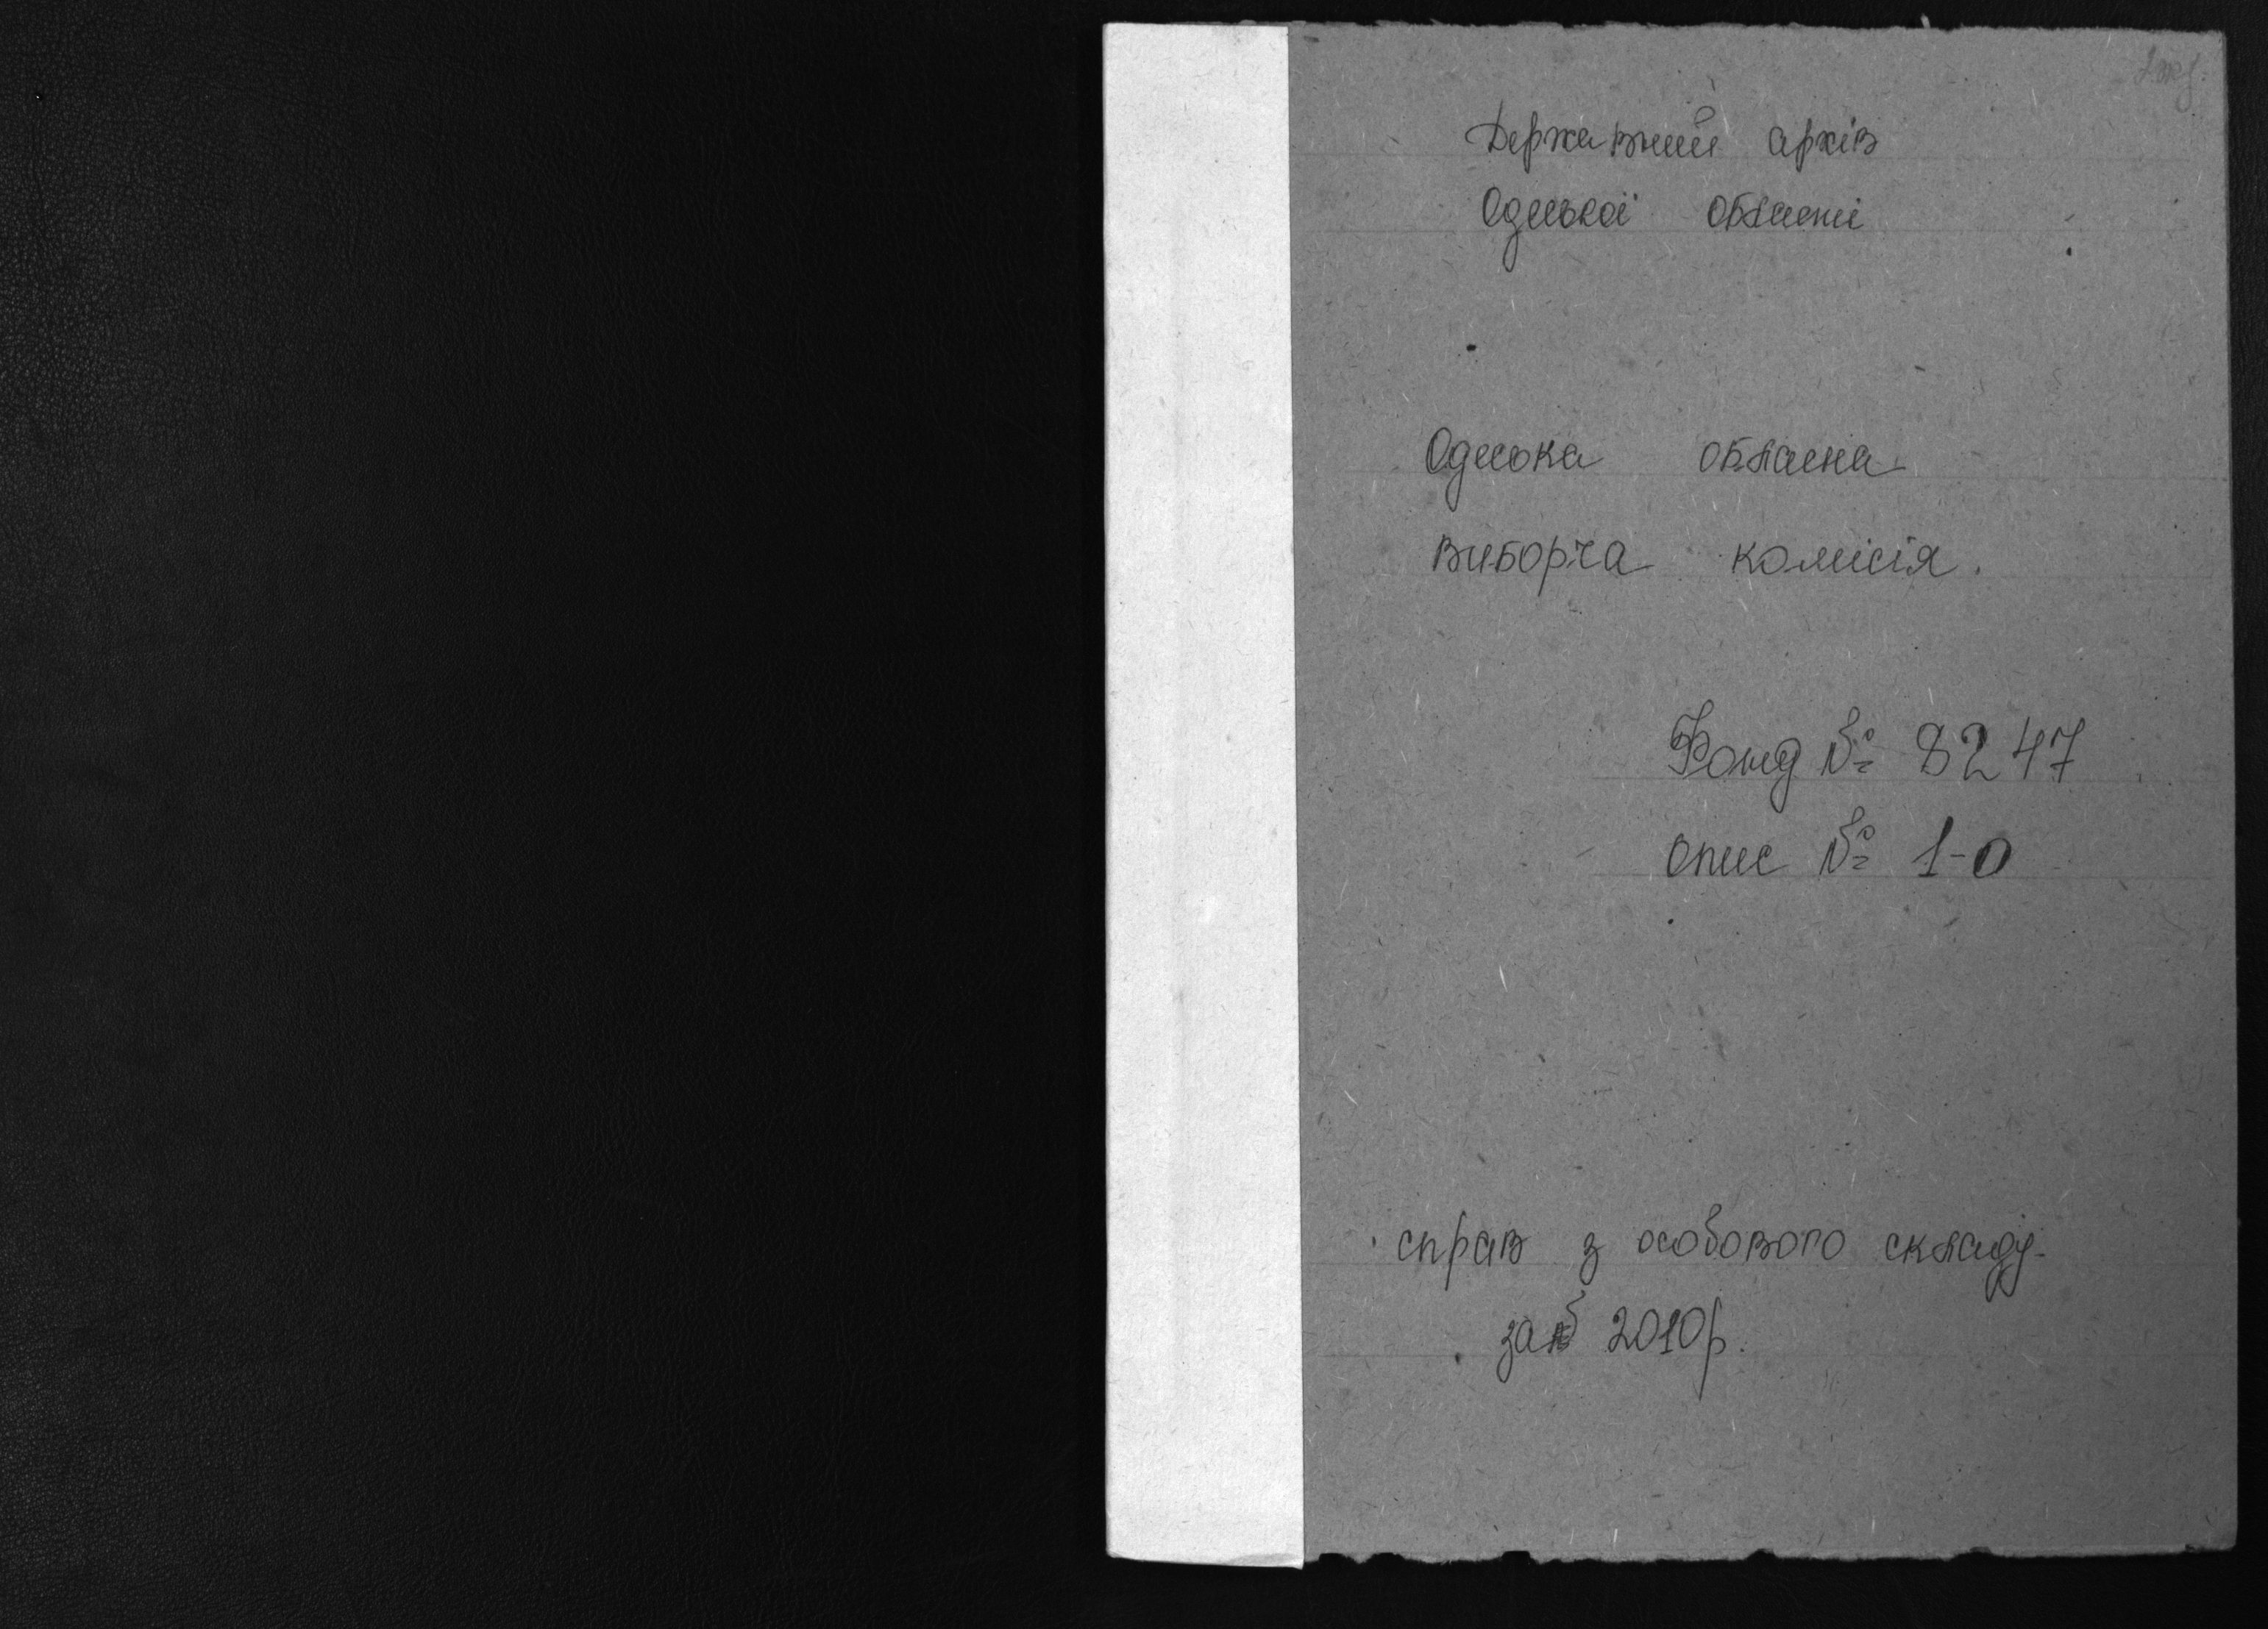 Державний архів
Одеської області
Одеська обласна
виборча комісія.
Фонд № 8247
опис № 1-О
справ з особового складу
за 2010р.